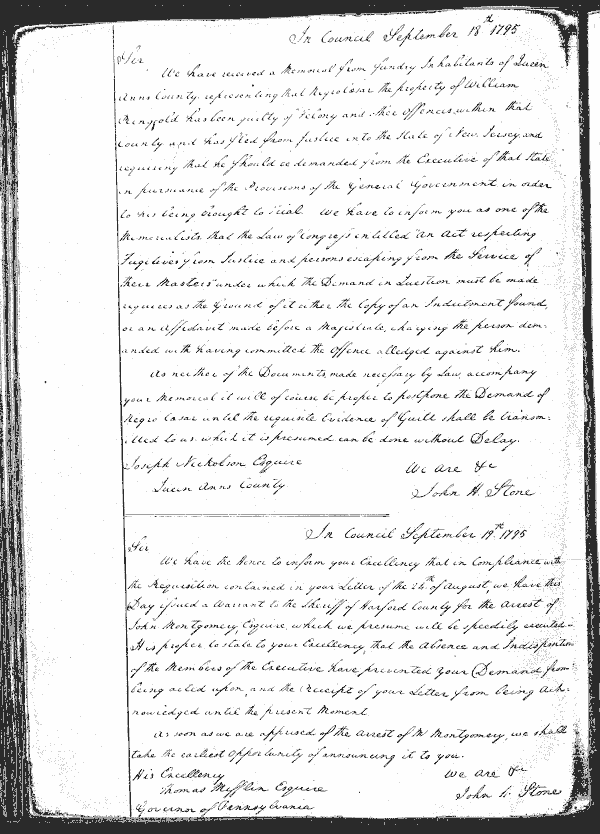 In Council September 18th 1795
Sir
We have received a Memorial from sundry Inhabitants of Queen
Anns County, representing that Negro Cesar the property of William
Ringgold has been guilty of Felony and other Offences, within that
County and has fled from Justice into the State of New Jersey, and
requiring that he should be demanded from the Executive of that State
in pursuance of the Provisions of the General Government in order
to his being brought to Trial. We have to inform you as one of the
Memorialists that the Law of Congress entitled "An Act respecting
Fugitives from Justice and persons escaping from the Service of
their Masters" under which the Demand in Question must be made
requires as the Ground of it either the Copy of an Indictment found,
or an Affidavit made before a Magistrate, charging the person dem-
anded with having committed the Offence alledged against him.
As neither of the Documents, made necessary by Law, accompany
your Memorial it will of course be proper to postpone the Demand of
Negro Cesar until the requisite Evidence of Guilt shall be transm-
itted to us, which it is presumed can be done without Delay.
Joseph Nickolson Esquire We are &c
Queen Anns County John H. Stone
In Council September 19th 1795
Sir
We have the Honor to inform your Excellency that in Compliance with
the Requisition contained in your Letter of the 24th of August, we have this
Day issued a Warrant to the Sheriff of Harford County for the Arrest of
John Montgomery, Esquire, which we presume will be speedily executed.
It is proper to state to your Excellency, that the Absence and Indisposition
of the Members of the Executive have prevented your Demand from
being acted upon, and the Receipt of your Letter from being Ack-
nowledged until the present Moment.
As soon as we are apprised of the Arrest of Mr Montgomery, we shall
take the earliest Opportunity of announcing it to you.
His Excellency We are &c
Thomas Mifflin Esquire John H. Stone
Governor of Pennsylvania